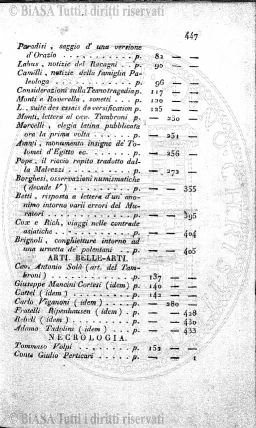 © BiASA Tutti i Diritti riservati
447
Paradisi, saggio d' una versione
d'Orazio . . . . . . . . . p. 82 — —
Labus, notizie del Rocagni . . p. 90 — —
Camilli, notizie della famiglia Pa-
leologa . . . . . . . . . p. 96 — —
Considerazioni sulla Tanotragedia p. 117 — —
Monti e Roverella, sonetti . . . p. 120 — —
L., suite des essais de versification p. 125 — —
Monti, lettera al cav. Tambroni p. — 230 —
Marcelli, elegia latina pubblicata
ora la prima volta . . . . . p. — 251 —
Amati, monumento insigne de' To-
lomei d'Egitto ec. . . . . . p. — 256 —
Pope, il riccio rapito tradotto dal-
la Malvezzi . . . . . . . p. — 272 —
Borghesi, osservazioni numismatiche
(decade V) . . . . . . . p. — — 355
Betti, risposta a lettera d'un ano-
nimo intorno varii errori del Mu-
ratori . . . . . . . . . p. — — 395
Cox e Rich, viaggi nelle contrade
asiatiche . . . . . . . . p. — — 404
Brignoli, conghietture intorno ad
una urnetta de' polentani . . . p. — — 405
ARTI. BELLE-ARTI.
Cav. Antonio Solà (art. del Tam-
broni) . . . . . . . . . p. 137 — —
Giuseppe Mancini Cortesi (idem) p. 140 — —
Cattel (idem) . . . . . . . p. 142 — —
Carlo Voganoni (idem) . . . . p. — 280 —
Fratelli Ripenhausen (idem) . . p. — — 428
Rebell (idem) . . . . . . . p. — — 430
Adamo Tadolini (idem) . . . . p. — — 433
NECROLOGIA.
Tommaso Volpi . . . . . . p. 152 — —
Conte Giulio Perticari . . . . p. — — 1
© BiASA Tutti i Diritti riservati